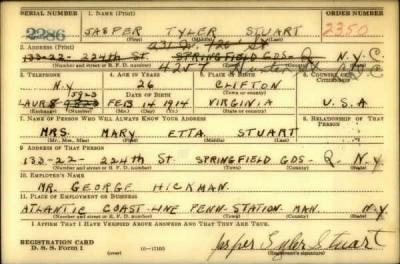 SERIAL NUMBER 1. NAME (Print) ORDER NUMBER
2286 JASPER TYLER STUART 2350
(First) (Middle) (Last)
2. ADDRESS (Print)
231 W. 126 St
133-22- 224th ST. SPRINGFIELD GDS- Q N.Y.
(Number and street or R. F. D. number) (Town) (County) (State)
3. TELEPHONE 4. AGE IN YEARS 5. PLACE OF BIRTH 6. COUNTRY OF CITIZENSHIP
N.Y 26 CLIFTON
5923 DATE OF BIRTH
LAUR 8 9823 FEB 14 1914 VIRGINIA U.S.A
(Exchange) (Number) (Mo.) (Day) (Yr.) (State or country)
7. NAME OF PERSON WHO WILL ALWAYS KNOW YOUR ADDRESS 8. RELATIONSHIP OF THAT PERSON
MRS. MARY ETTA STUART
(Mr., Mrs., Miss) (First) (Middle) (Last)
9. ADDRESS OF THAT PERSON
133-22- 224th ST. SPRINGFIELD GDS- Q. N.Y
(Number and street or R. F. D. number) (Town) (County) (State)
10. EMPLOYER'S NAME
MR. GEORGE HICKMAN.
11. PLACE OF EMPLOYMENT OR BUSINESS
ATLANTIC COAST-LINE PENN-STATION-MAN. N.Y
(Number and street or R. F. D. number) (Town) (County) (State)
I AFFIRM THAT I HAVE VERIFIED ABOVE ANSWERS AND THAT THEY ARE TRUE.
REGISTRATION CARD
D. S. S. Form 1 16-17105 Jasper Tyler Stuart
(Registrant's signature)